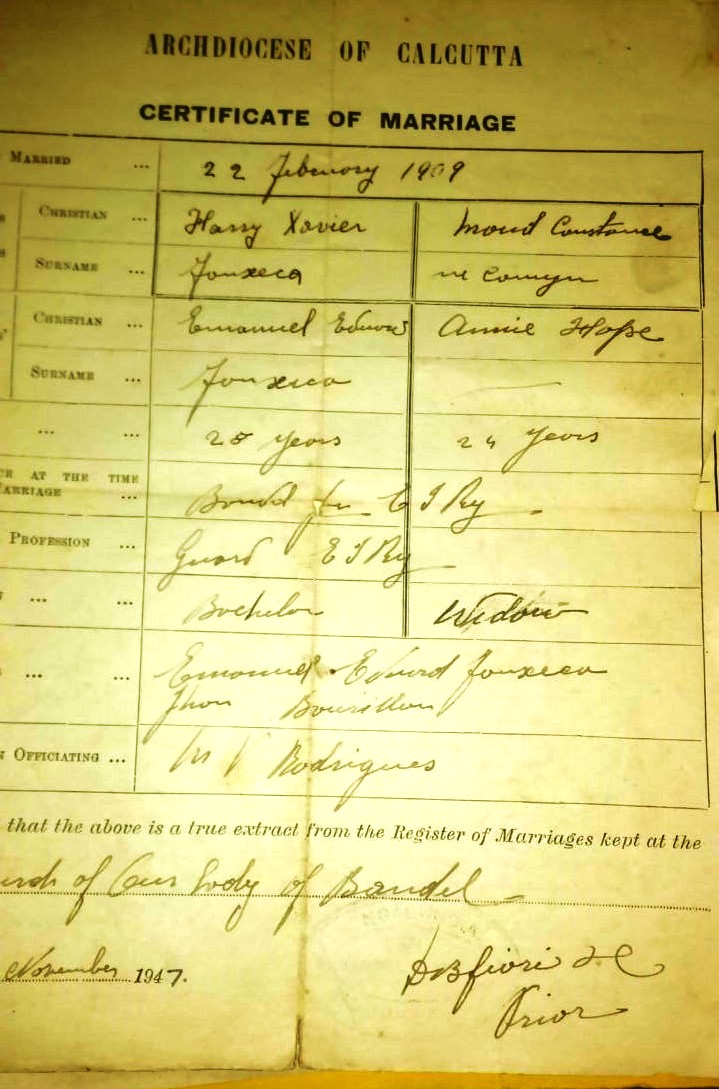 ARCHDIOCESE OF CALCUTTA
CERTIFICATE OF MARRIAGE
MARRIED ... 22 February 1909
CHRISTIAN ... Harry Xavier Maud Constance
SURNAME ... Fonxeca
CHRISTIAN ... Emanuel Edward Annie Hope
SURNAME ... Fonxeca
... ... 28 years 24 years
AT THE TIME
MARRIAGE ... Bandel Jn. E I Ry
PROFESSION ... Guard E I Ry
... ... Bachelor Widow
... ... Emanuel Edward Fonxeca
Jhon
OFFICIATING ... Rodrigues
that the above is a true extract from the Register of Marriages kept at the
of Our Lady of Bandel
November 1947.
Prior